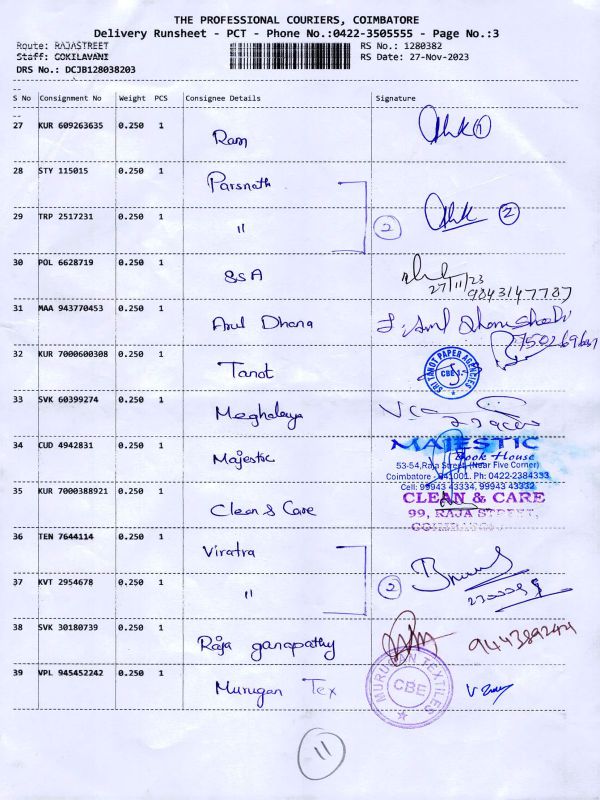 THE PROFESSIONAL COURIERS, COIMBATORE
Delivery Runsheet - PCT - Phone No.:0422-3505555 - Page No.:3
Route: RAJASTREET
RS No.: 1280382
Staff: GOKILAVANI
RS Date: 27-Nov-2023
DRS No.: DCJB128038203
S No Consignment No Weight PCS Consignee Details Signature
27 KUR 609263635 0.250 1 Ram 1
28 STY 115015 0.250 1 Parsnath
29 TRP 2517231 0.250 1 " 2 2
30 POL 6628719 0.250 1 SSA
27/11/23
9843147707
31 MAA 943770453 0.250 1 Arul Dhana
32 KUR 7000600308 0.250 1 Tanot
SRI TANOT PAPER AGENCIES
CBE-1.
33 SVK 60399274 0.250 1 Meghalaya
34 CUD 4942831 0.250 1 Majestic
MAJESTIC
Book House
53-54, Raja Street (Near Five Corner)
Coimbatore - 641001. Ph: 0422-2384333
Cell: 99943 43334, 99943 43332
35 KUR 7000388921 0.250 1 Clean & Care
CLEAN & CARE
99, RAJA STREET,
COIMBATORE
36 TEN 7644114 0.250 1 Viratra
37 KVT 2954678 0.250 1 " 2
38 SVK 30180739 0.250 1 Raja ganapathy
39 VPL 945452242 0.250 1 Murugan Tex
MURUGAN TEXTILES
CBE
11